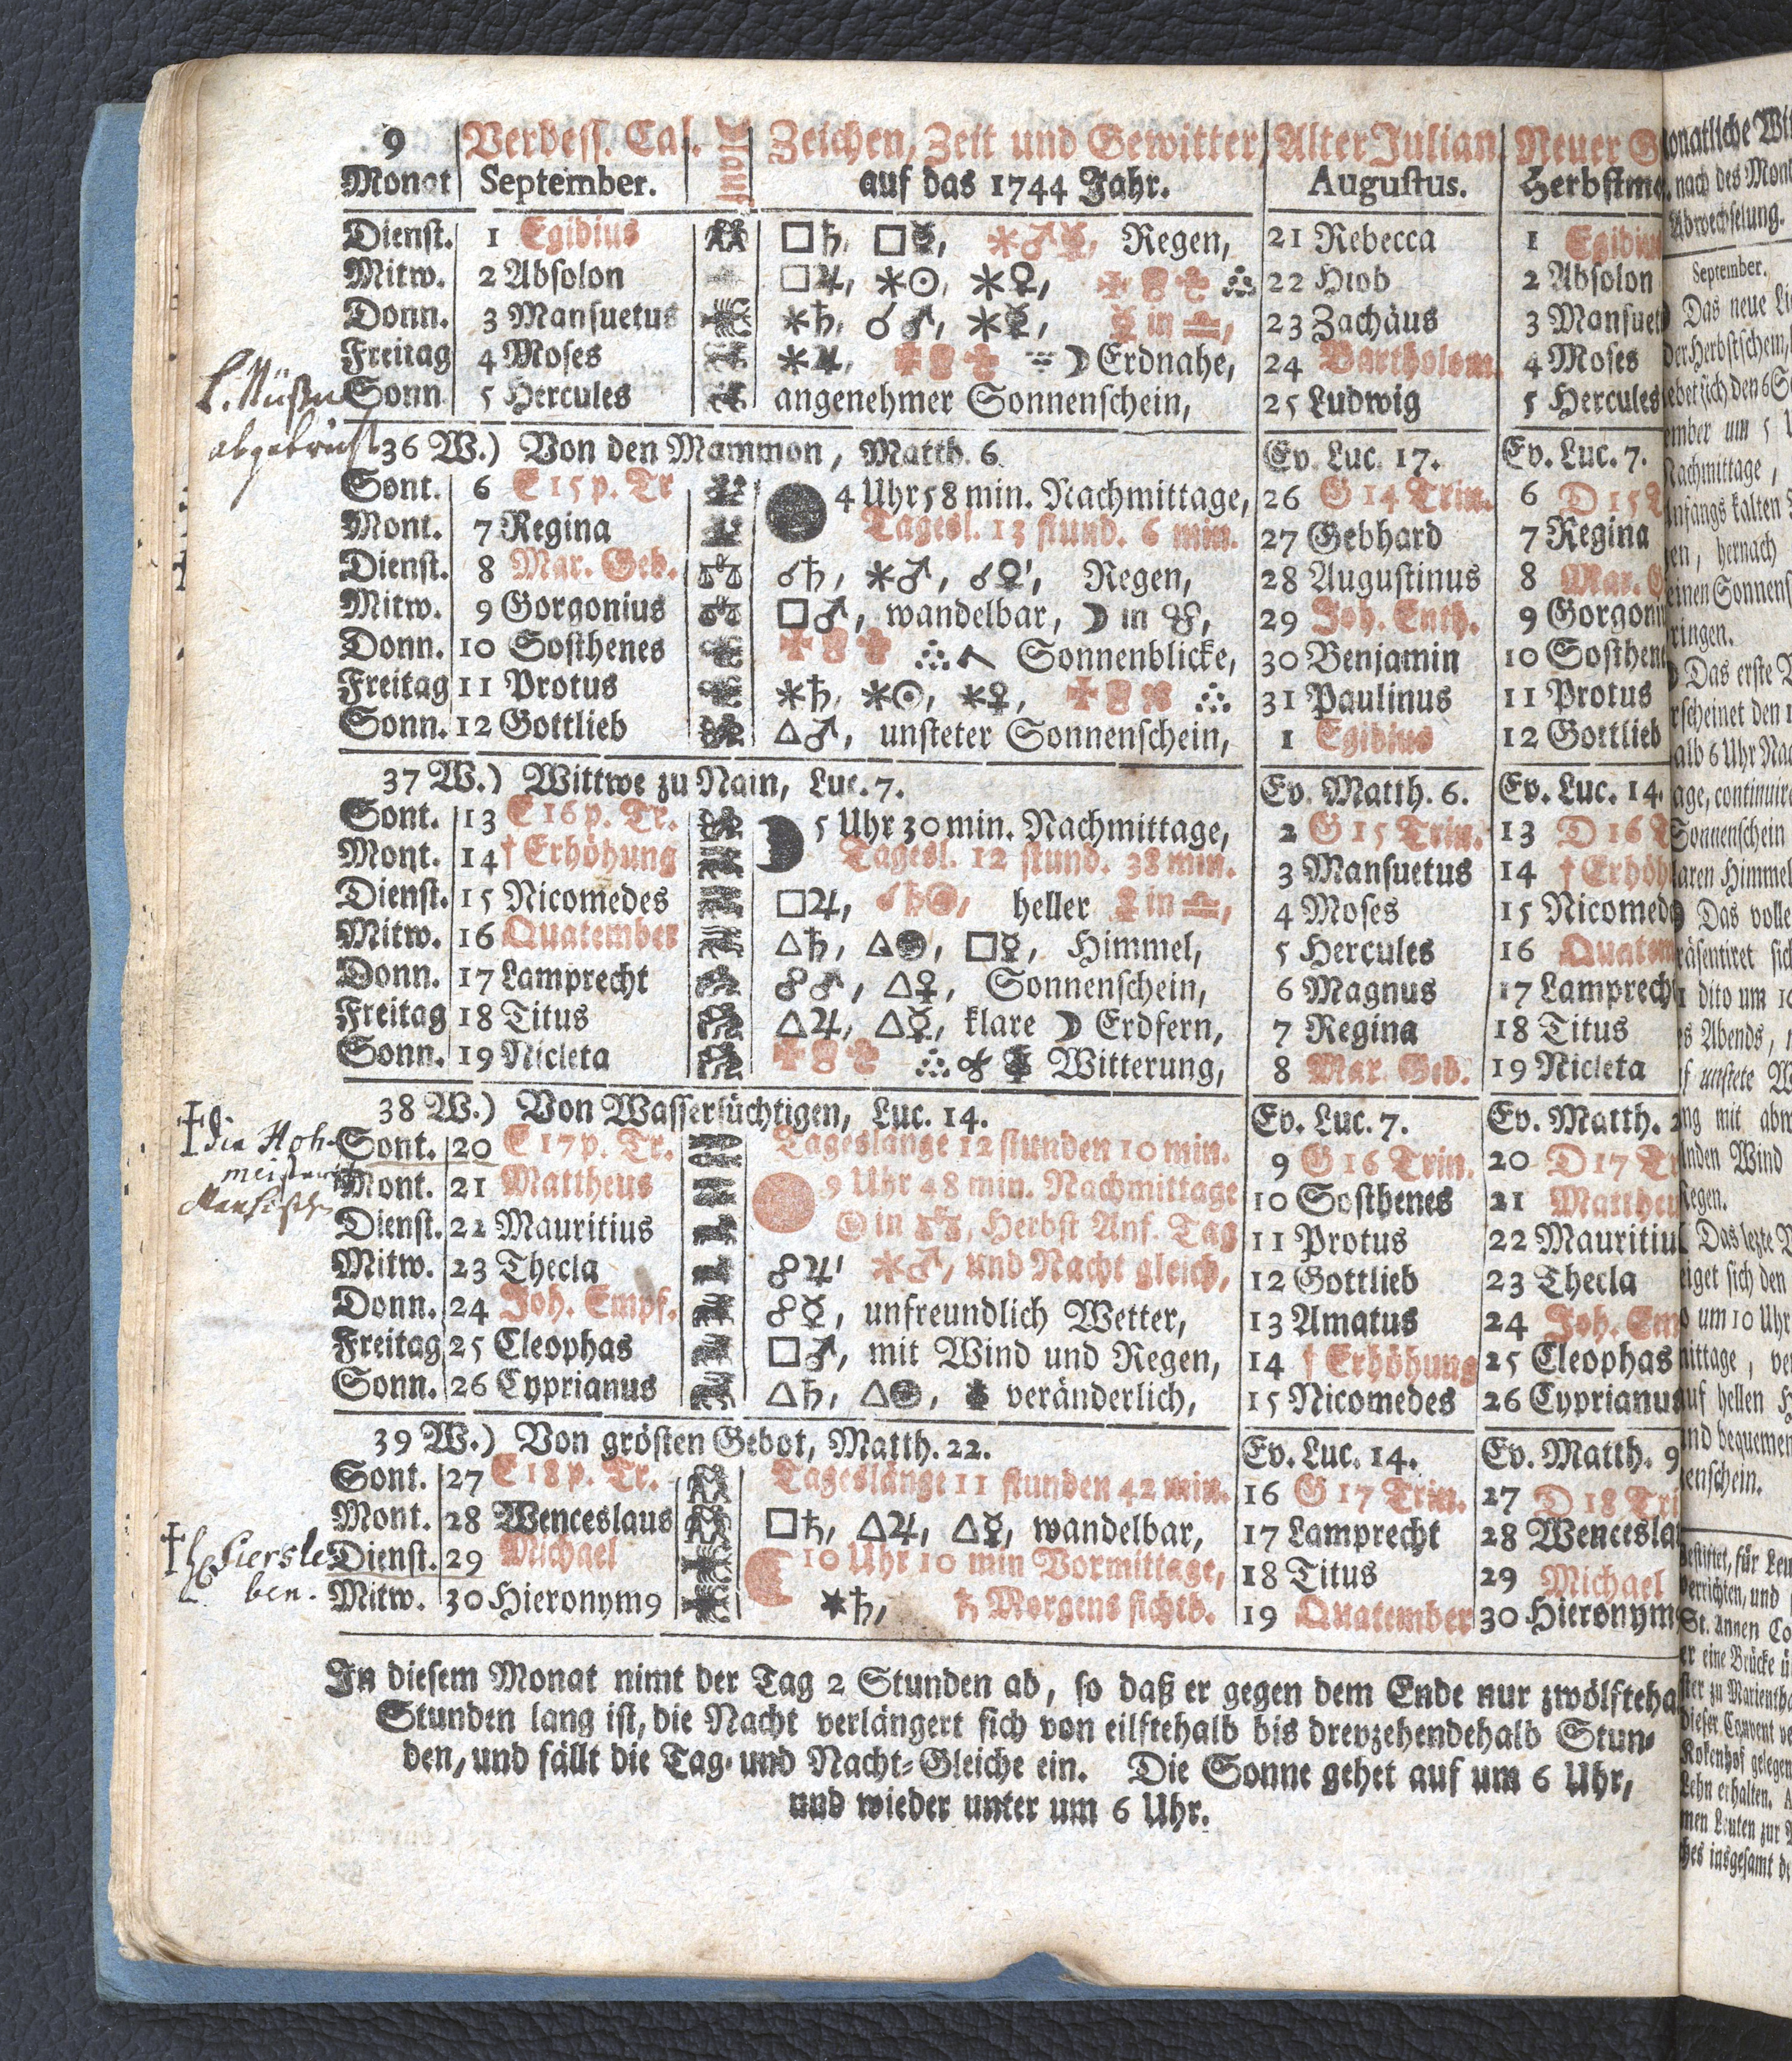 9 Verbess. Cal. Mond Zeichen, Zeit und Gewitter, Alter Julian. Neuer G
Monat September. auf das 1744 Jahr. Augustus. Herbstmo
Dienst. 1 Egidius □♄, □☿, ⚹♂☿, Regen, 21 Rebecca 1 Egidius
Mitw. 2 Absolon □♃, ⚹☉, ⚹♀, 22 Hiob 2 Absolon
Donn. 3 Mansuetus ⚹♄, ☌♂, ⚹☿, ☿ in ♎, 23 Zachäus 3 Mansuet
Freitag 4 Moses ⚹♃, ☽ Erdnahe, 24 Bartholom. 4 Moses
Sonn 5 Hercules angenehmer Sonnenschein, 25 Ludwig 5 Hercules
abgebrüst
36 W.) Von den Mammon, Matth. 6. Ev. Luc. 17. Ev. Luc. 7.
Sont. 6 E 15 p. Tr 4 Uhr 58 min. Nachmittage, 26 G 14 Trin. 6 D 15 T
Mont. 7 Regina Tagesl. 13 stund. 6 min. 27 Gebhard 7 Regina
Dienst. 8 Mar. Geb. ☌♄, ⚹♂, ☌♀, Regen, 28 Augustinus 8 Mar. G
Mitw. 9 Gorgonius □♂, wandelbar, ☽ in ☊, 29 Joh. Enth. 9 Gorgoni
Donn. 10 Sosthenes Sonnenblicke, 30 Benjamin 10 Sosthene
Freitag 11 Protus ⚹♄, ⚹☉, ⚹♀, 31 Paulinus 11 Protus
Sonn. 12 Gottlieb △♂, unsteter Sonnenschein, 1 Egidius 12 Gottlieb
37 W.) Wittwe zu Nain, Luc. 7. Ev. Matth. 6. Ev. Luc. 14.
Sont. 13 E 16 p. Tr. 5 Uhr 30 min. Nachmittage, 2 G 15 Trin. 13 D 16 T
Mont. 14 † Erhöhung Tagesl. 12 stund. 38 min. 3 Mansuetus 14 † Erhöh
Dienst. 15 Nicomedes □♃, ☌♄☉, heller ♀ in ♎, 4 Moses 15 Nicomed
Mitw. 16 Quatember △♄, △☉, □☿, Himmel, 5 Hercules 16 Quatem
Donn. 17 Lamprecht ☍♂, △♀, Sonnenschein, 6 Magnus 17 Lamprech
Freitag 18 Titus △♃, △☿, klare ☽ Erdfern, 7 Regina 18 Titus
Sonn. 19 Nicleta Witterung, 8 Mar. Geb. 19 Nicleta
38 W.) Von Wassersüchtigen, Luc. 14. Ev. Luc. 7. Ev. Matth. 2
† die Hoh-
Sont. 20 E 17 p. Tr. Tageslänge 12 stunden 10 min. 9 G 16 Trin. 20 D 17 Tr
Mont. 21 Mattheus 9 Uhr 48 min. Nachmittage 10 Sosthenes 21 Mattheu
Dienst. 22 Mauritius ☉ in ♎, Herbst Anf. Tag 11 Protus 22 Mauritiu
Mitw. 23 Thecla ☍♃ ⚹♂, und Nacht gleich, 12 Gottlieb 23 Thecla
Donn. 24 Joh. Empf. ☍☿, unfreundlich Wetter, 13 Amatus 24 Joh. Em
Freitag 25 Cleophas □♂, mit Wind und Regen, 14 † Erhöhung 25 Cleophas
Sonn. 26 Cyprianus △♄, △☉, veränderlich, 15 Nicomedes 26 Cyprianus
39 W.) Von grösten Gebot, Matth. 22. Ev. Luc. 14. Ev. Matth. 9
Sont. 27 E 18 p. Tr. Tageslänge 11 stunden 42 min. 16 G 17 Trin. 27 D 18 Tri
Mont. 28 Wenceslaus □♄, △♃, △☿, wandelbar, 17 Lamprecht 28 Wencesla
Dienst. 29 Michael 10 Uhr 10 min Vormittage, 18 Titus 29 Michael
Mitw. 30 Hieronym9 ⚹♄, ♄ Morgens sichtb. 19 Quatember 30 Hieronym
ben.
In diesem Monat nimt der Tag 2 Stunden ab, so daß er gegen dem Ende nur zwölfteha
Stunden lang ist, die Nacht verlängert sich von eilftehalb bis dreyzehendehalb Stun-
den, und fällt die Tag- und Nacht-Gleiche ein. Die Sonne gehet auf um 6 Uhr,
und wieder unter um 6 Uhr.
onatliche Wi
nach des Mon
Abwechselung.
September.
Das neue Li
der Herbstschein,
ebet sich den 6 S
ember um 5
Nachmittage,
nfangs kalten
en, hernach
einen Sonnens
ringen.
Das erste
rscheinet den 1
alb 6 Uhr Na
age, continuir
Sonnenschein
aren Himmel
Das volle
räsentiret sic
dito um 10
es Abends,
f unstete W
ng mit abw
nden Wind
Regen.
Das lezte
eiget sich den
um 10 Uhr
nittage, ve
uf hellen H
nd bequemen
enschein.
gestiftet, für Leu
verrichten, und
St. Annen Co
er eine Brücke ü
ster zu Marientha
dieser Convent ve
Rokenhof gelegen
Lehn erhalten. A
men Leuten zur
ches insgesamt d